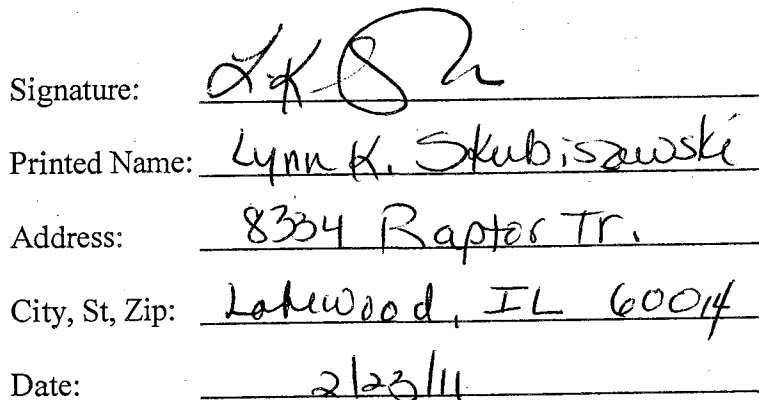 Signature: LKS
Printed Name: Lynn K. Skubiszewski
Address: 8334 Raptor Tr.
City, St, Zip: Lakewood, IL 60014
Date: 2/23/11